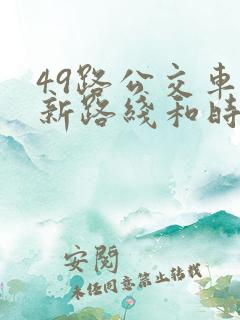 49路公交车
新路线和时
安阅
未经同意禁止转载